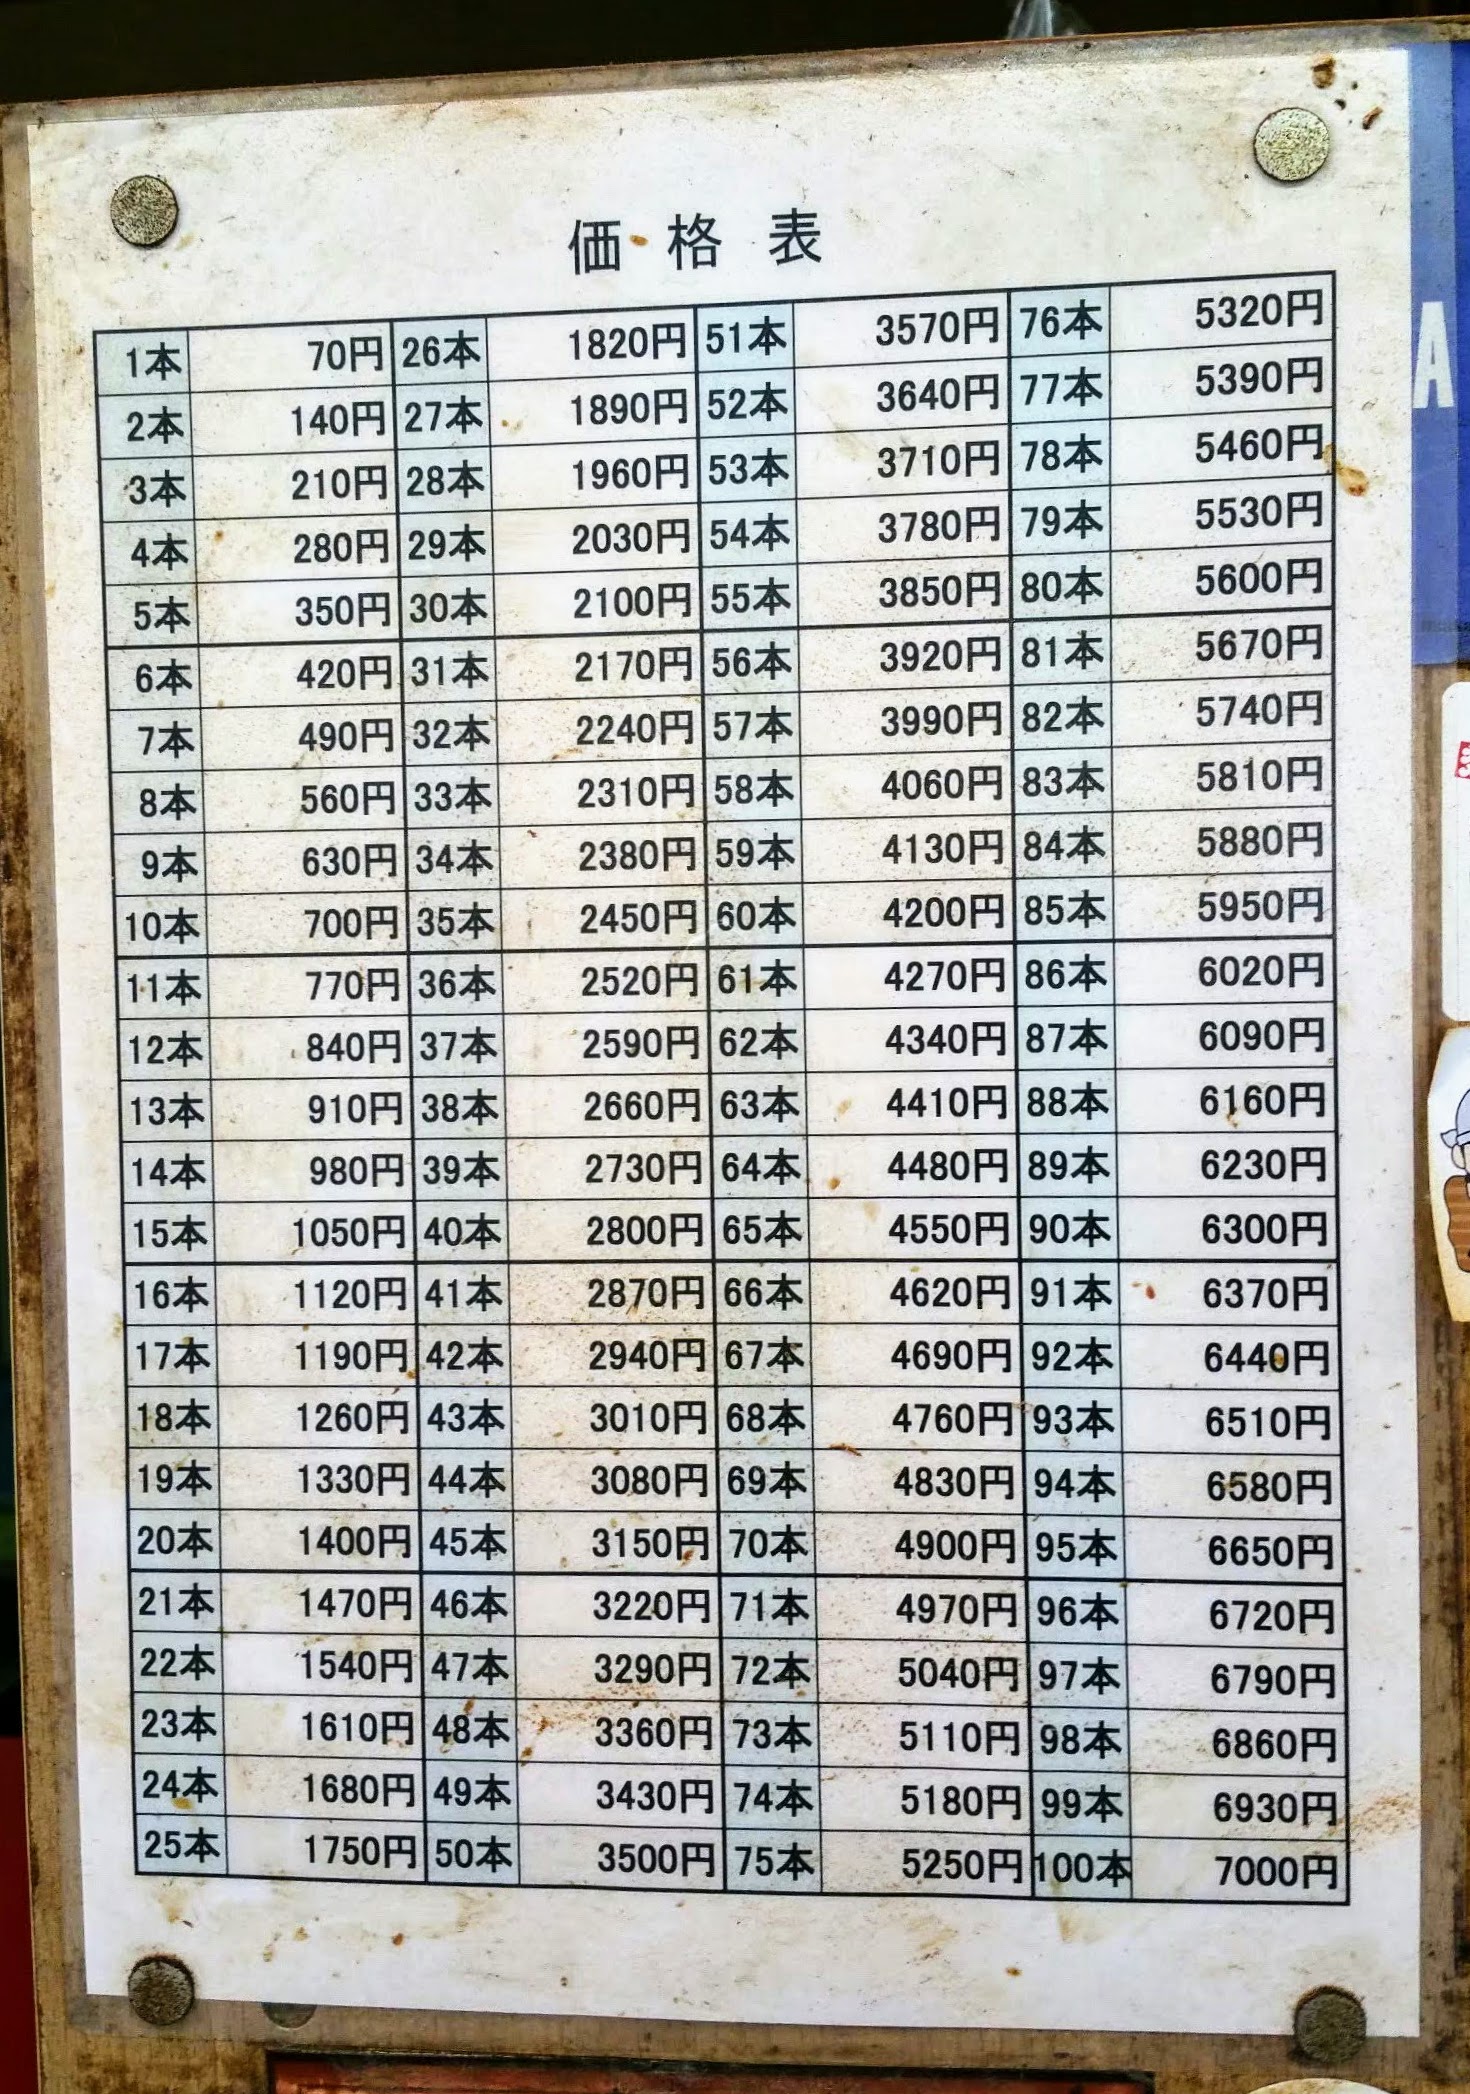 価格表
1本 70円 26本 1820円 51本 3570円 76本 5320円
2本 140円 27本 1890円 52本 3640円 77本 5390円
3本 210円 28本 1960円 53本 3710円 78本 5460円
4本 280円 29本 2030円 54本 3780円 79本 5530円
5本 350円 30本 2100円 55本 3850円 80本 5600円
6本 420円 31本 2170円 56本 3920円 81本 5670円
7本 490円 32本 2240円 57本 3990円 82本 5740円
8本 560円 33本 2310円 58本 4060円 83本 5810円
9本 630円 34本 2380円 59本 4130円 84本 5880円
10本 700円 35本 2450円 60本 4200円 85本 5950円
11本 770円 36本 2520円 61本 4270円 86本 6020円
12本 840円 37本 2590円 62本 4340円 87本 6090円
13本 910円 38本 2660円 63本 4410円 88本 6160円
14本 980円 39本 2730円 64本 4480円 89本 6230円
15本 1050円 40本 2800円 65本 4550円 90本 6300円
16本 1120円 41本 2870円 66本 4620円 91本 6370円
17本 1190円 42本 2940円 67本 4690円 92本 6440円
18本 1260円 43本 3010円 68本 4760円 93本 6510円
19本 1330円 44本 3080円 69本 4830円 94本 6580円
20本 1400円 45本 3150円 70本 4900円 95本 6650円
21本 1470円 46本 3220円 71本 4970円 96本 6720円
22本 1540円 47本 3290円 72本 5040円 97本 6790円
23本 1610円 48本 3360円 73本 5110円 98本 6860円
24本 1680円 49本 3430円 74本 5180円 99本 6930円
25本 1750円 50本 3500円 75本 5250円 100本 7000円
A